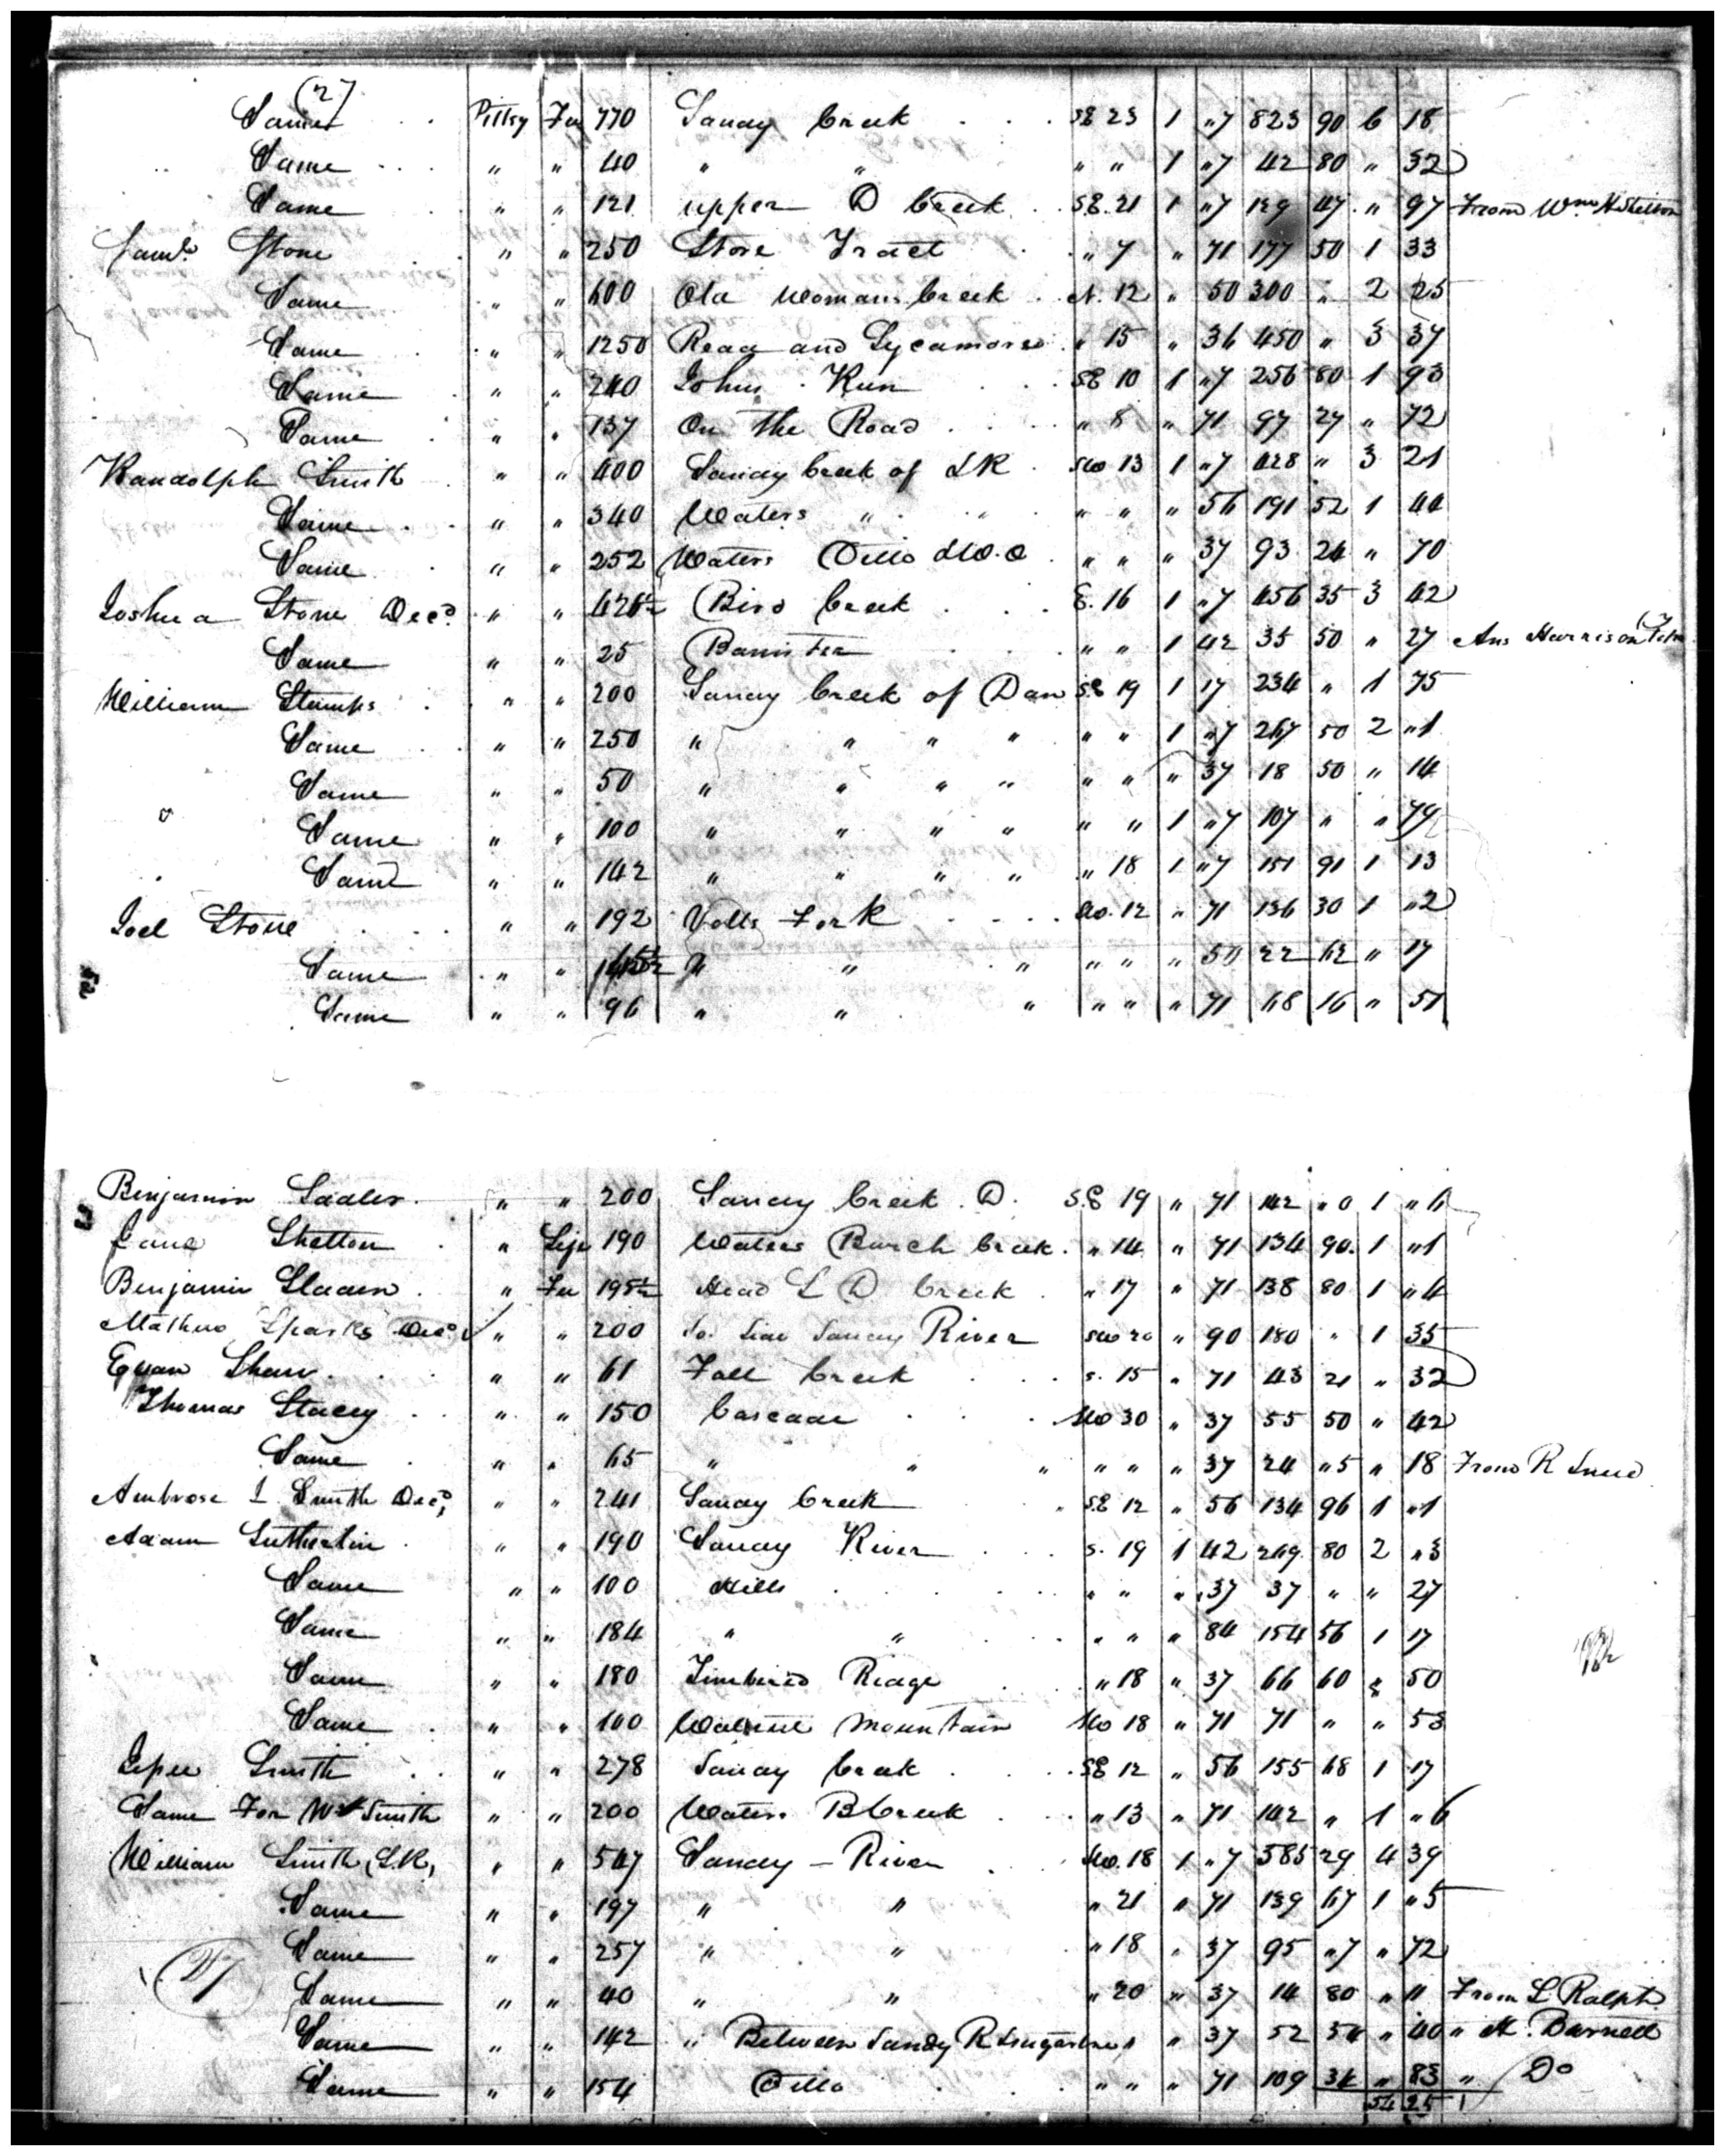 (27
Same . . Pittsy Fee 770 Sandy Creek . . . SE 23 1 "7 823 90 6 18
Same . . . " " 40 " " " " 1 "7 42 80 " 32
Same " " 121 upper D Creek . . SE. 21 1 "7 129 47 " 97 From Wm H Shelton
Saml. Stone " " 250 Store Tract . " 7 " 71 177 50 1 33
Same " " 600 Old Womans Creek . N. 12 " 50 300 " 2 25
Same " " 1250 Read and Sycamore . " 15 " 36 450 " 3 37
Same " " 240 Johns Run . . . SE 10 1 "7 256 80 1 93
Same " " 137 On the Road . . . " 8 " 71 97 27 " 72
Randolph Smith " " 400 Sandy Creek of SR . SW 13 1 "7 428 " 3 21
Same . . " " 340 Waters " " " " " 56 191 52 1 44
Same . " " 252 Waters Ditto " " " 37 93 24 " 70
Joshua Stone Decd. " " 426½ Bird Creek . . . E. 16 1 "7 456 35 3 42
Same " " 25 Banister . . . " " 1 42 35 50 " 27 Ans Harrison
William Stamps . " " 200 Sandy Creek of Dan SE 19 1 17 234 " 1 75
Same " " 250 " " " " " " 1 "7 267 50 2 "1
Same " " 50 " " " " " " " 37 18 50 " 14
Same " " 100 " " " " " " 1 "7 107 " " 79
Same " " 142 " " " " " 18 1 "7 151 91 1 13
Joel Stone . . . " " 192 Volts Fork . . . . W. 12 " 71 136 30 1 "2
Same " " " " " " " " 50 22 62 " 17
Same " " 96 " " " " " " 71 68 16 " 51
Benjamin Sadler . " " 200 Sandy Creek . D. SE 19 " 71 142 " 0 1 "6
Jane Shelton . " Life 190 Waters Burch Creek . " 14 " 71 134 90 . 1 "1
Benjamin Sladen . " Fee 195½ Head L D Creek . " 17 " 71 138 80 1 "4
Mathew Sparks Decd. " " 200 So. Side Sandy River SW 20 " 90 180 " 1 35
Evan Shaw . . . " " 61 Fall Creek . . . S. 15 " 71 43 21 " 32
Thomas Stacey . . " " 150 Cascade . . . W 30 " 37 55 50 " 42
Same . " " 65 " " " " " " 37 24 "5 " 18 From R Snead
Ambrose J Smith Decd, " " 241 Sandy Creek . SE 12 " 56 134 96 1 "1
Adam Sutherlin . " " 190 Sandy River . . . S. 19 1 42 269 80 2 "3
Same " " 100 Hills . . . . . . " " " 37 37 " " 27
Same " " 184 " " . . " " " 84 154 56 1 17
Same " " 180 Timbered Ridge . . " 18 " 37 66 60 " 50
Same . " " 100 Mountain W 18 " 71 71 " " 53
Smith . . " " 278 Sandy Creek . . . SE 12 " 56 155 68 1 17
Same For Wm Smith " " 200 Waters B Creek . . " 13 " 71 142 " 1 "6
William Smith (SR) " " 547 Sandy - River . W. 18 1 "7 585 29 4 39
Same " " 197 " " " 21 " 71 139 67 1 "5
Same " " 257 " " " 18 " 37 95 "7 " 72
Same " " 40 " " " 20 " 37 14 80 " 11 From L Ralph
Same " " 142 " Between Sandy R & " 37 52 54 " 40 " Barnett
Same " " 154 Ditto . . . " " " 71 109 34 " 83 " Do
54 25
27